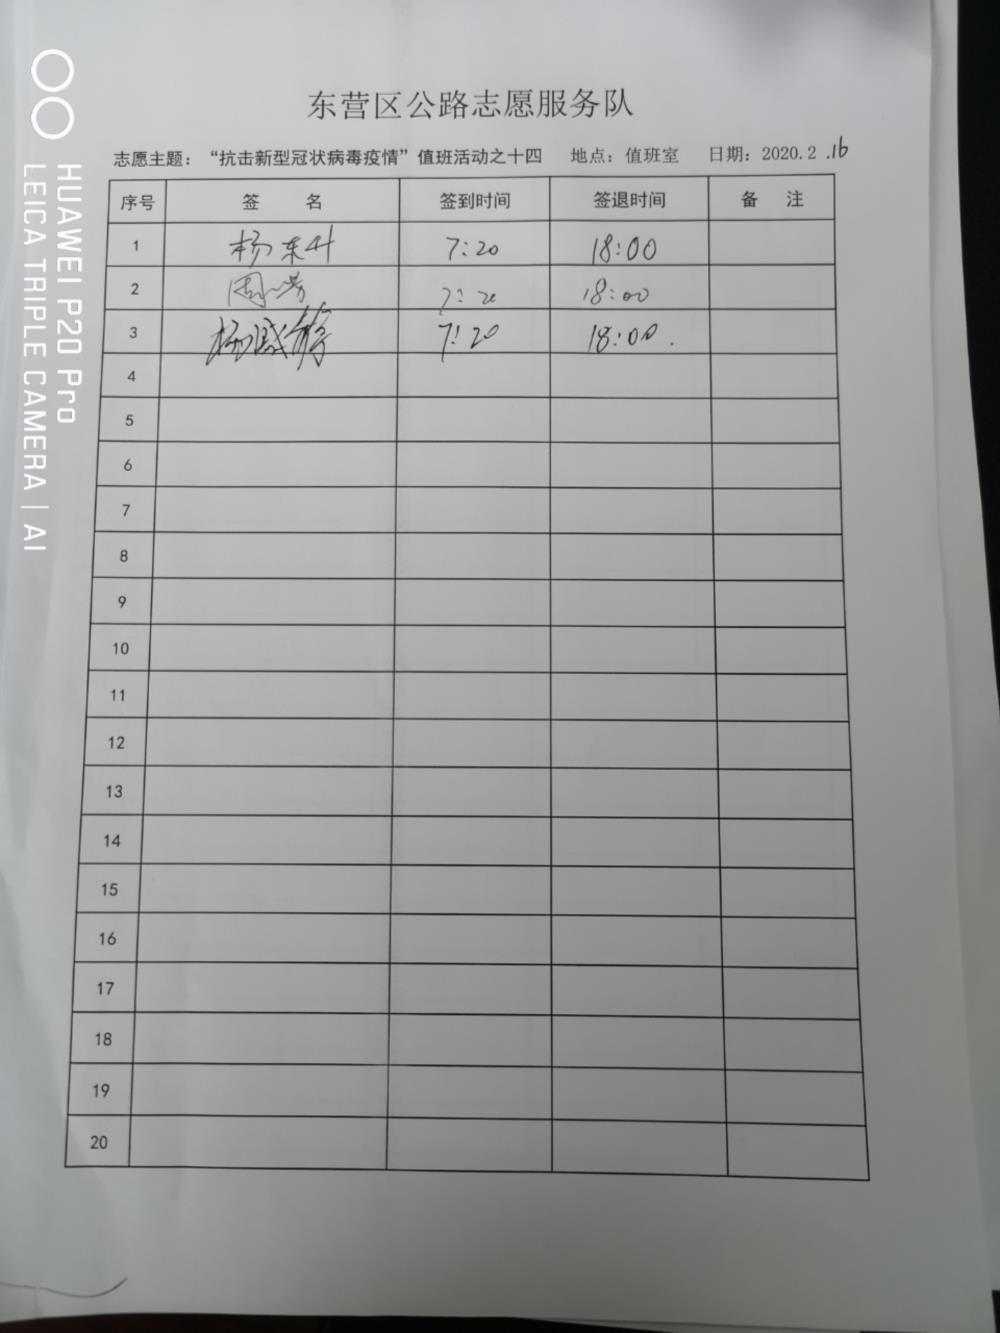 东营区公路志愿服务队
志愿主题：“抗击新型冠状病毒疫情”值班活动之十四 地点：值班室 日期：2020.2.16
序号 签 名 签到时间 签退时间 备 注
1 杨东升 7:20 18:00
2 周 芳 7:20 18:00
3 杨 静 7:20 18:00.
4
5
6
7
8
9
10
11
12
13
14
15
16
17
18
19
20
HUAWEI P20 Pro
LEICA TRIPLE CAMERA | AI